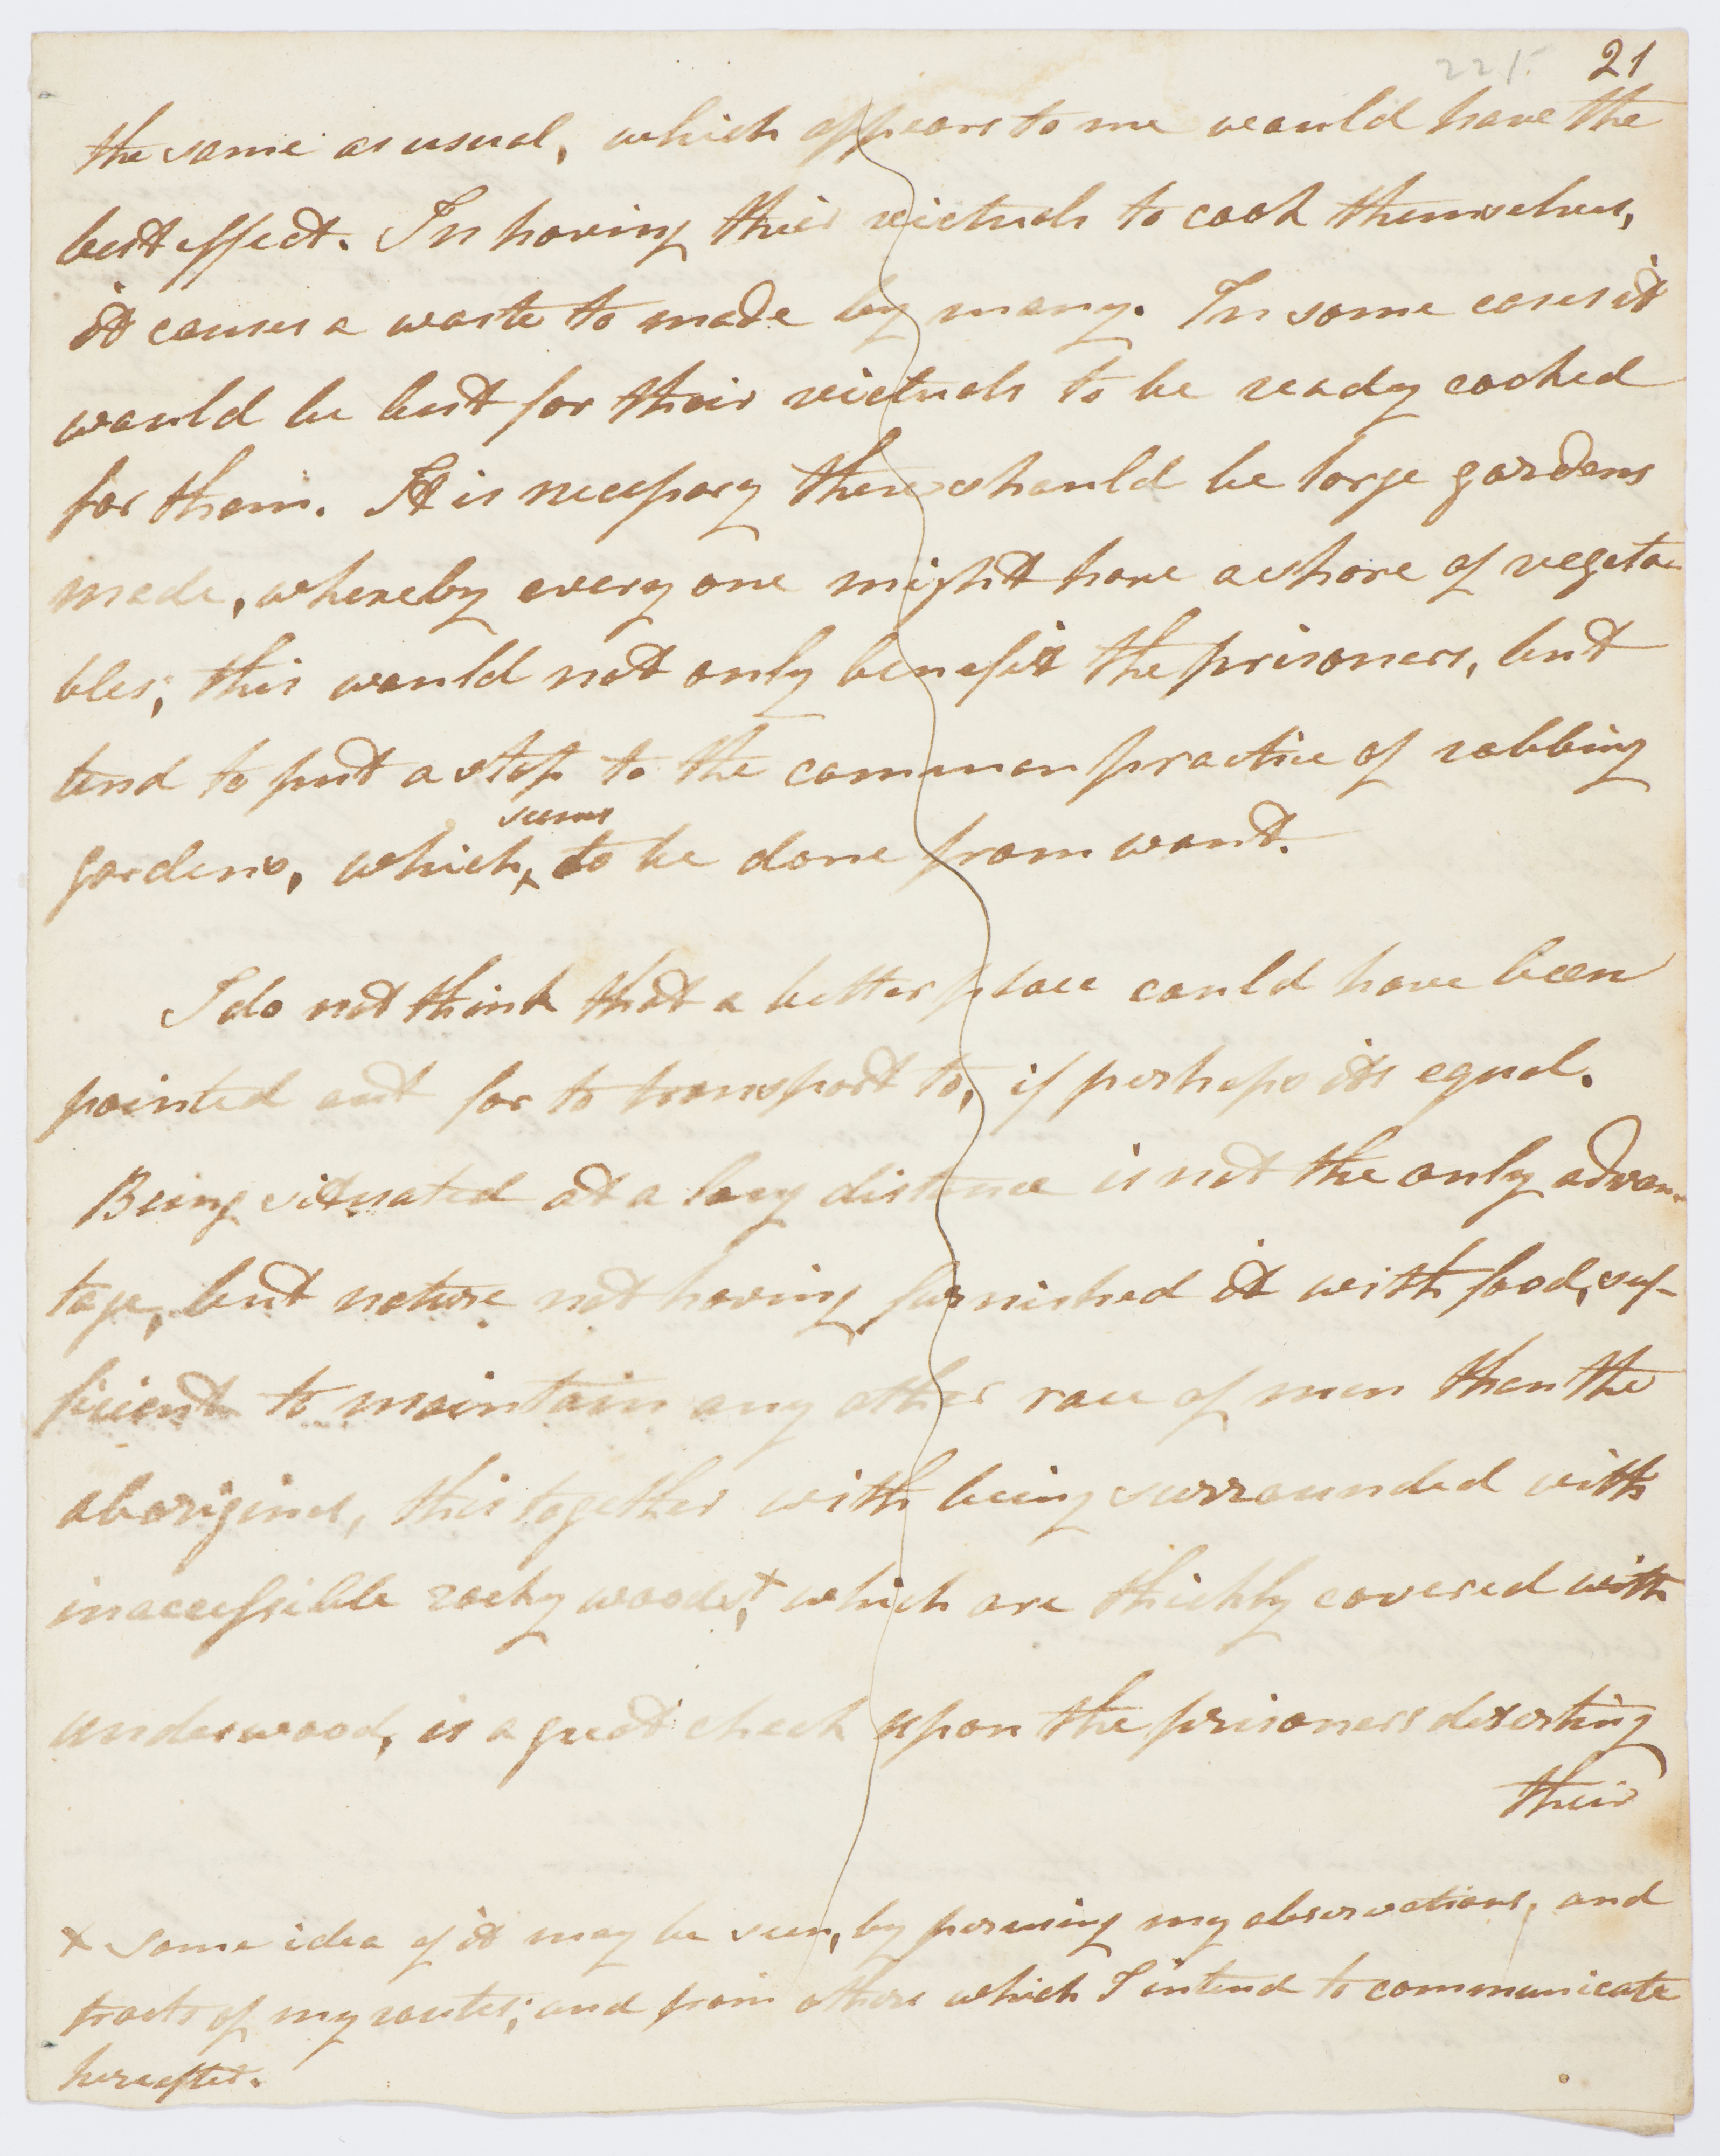 225. 21
the same as usual, which appears to me would have the
best effect. In having their victuals to cook themselves,
it causes a waste to made by many. In some cases it
would be best for their victuals to be ready cooked
for them. It is necessary there should be large gardens
made, whereby every one might have a share of vegeta-
bles; this would not only benefit the prisoners, but
tend to put a stop to the common practice of robbing
seems
gardens, which, to be done from want.
I do not think that a better place could have been
pointed out for to transport to, if perhaps its equal.
Being situated at a long distance is not the only advan-
tage, but nature not having furnished it with food, suf-
ficient to maintain any other race of men than the
aborigines, this together with being surrounded with
inaccessible rocky woods,+ which are thickly covered with
underwood, is a great check upon the prisoners deserting
their
+ Some idea of it may be seen, by perusing my observations, and
tracts of my routes; and from others which I intend to communicate
hereafter.